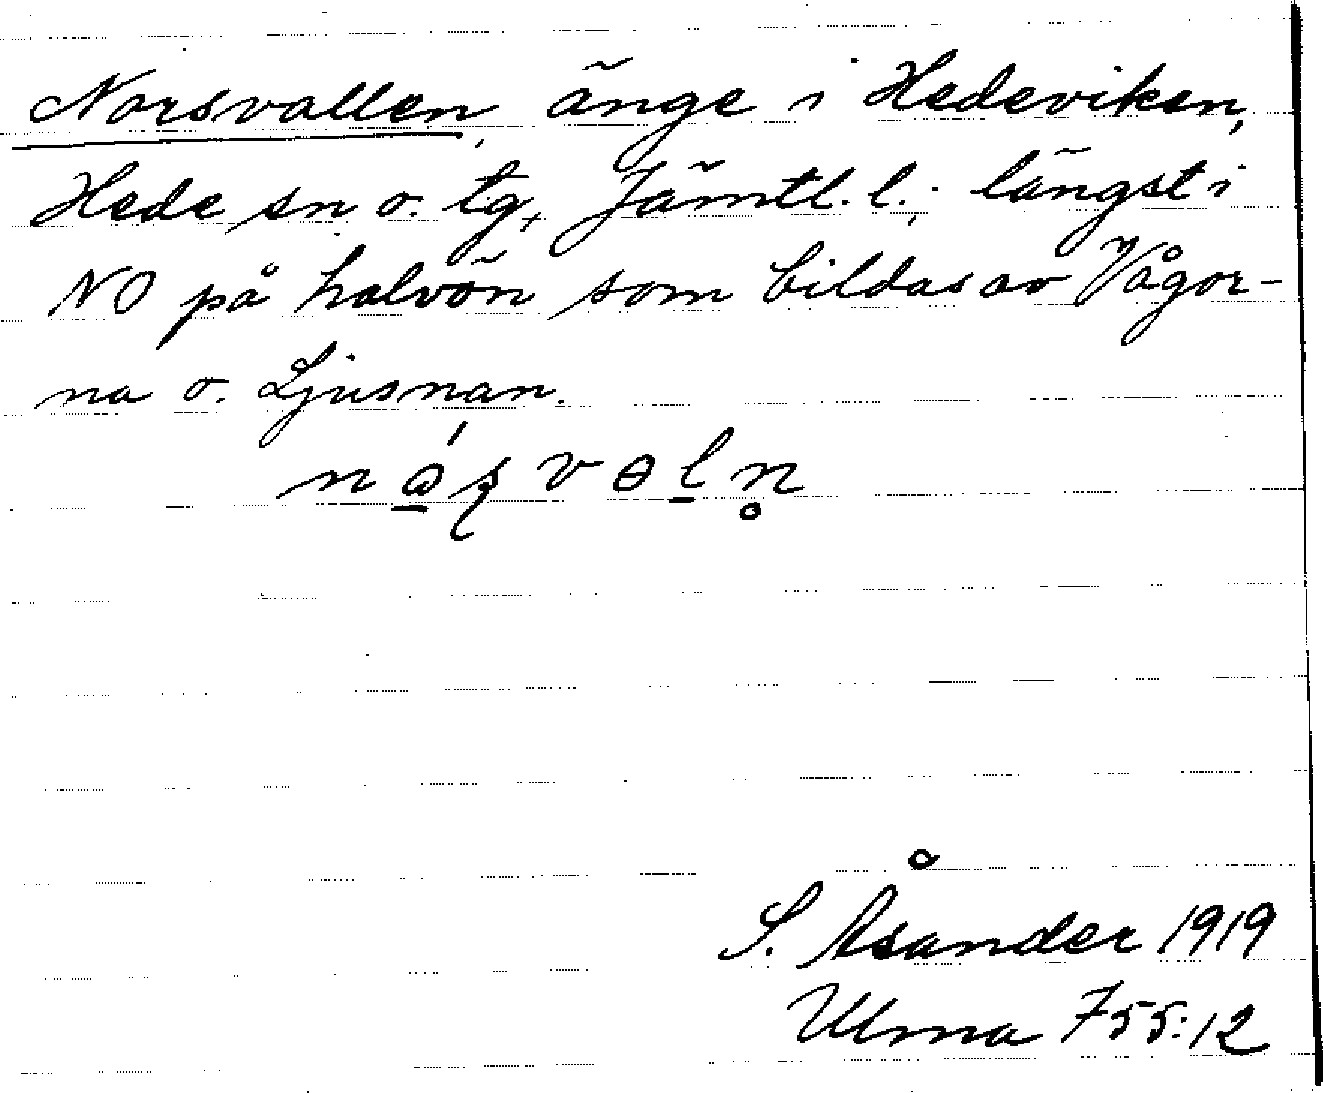 Norsvallen, änge i Hedeviken,
Hede sn o. tg, Jämtl. l.; längst i
NO på halvön som bildas av Vågor-
na o. Ljusnan.
S. Åsander 1919
Ulma 755:12